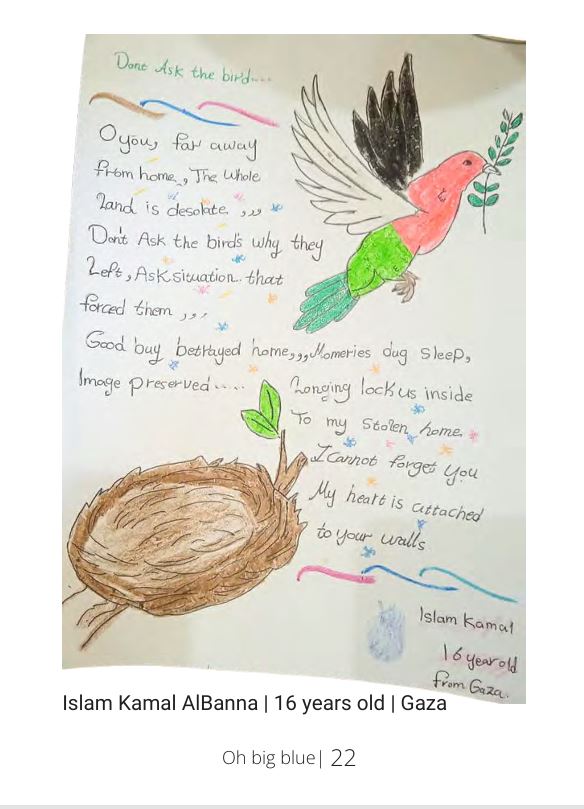 Dont Ask the bird....
O you, far away
from home, The whole
Land is desolate ,,,
Don't Ask the birds why they
Left, Ask situation.. that
forced them ,,,
Good buy betrayed home,,, Momeries dug sleep,
Image preserved.....
Longing lock us inside
To my stolen home.
I Cannot forget you
My heart is attached
to your walls
Islam Kamal
16 year old
from Gaza.
Islam Kamal AlBanna | 16 years old | Gaza
Oh big blue| 22